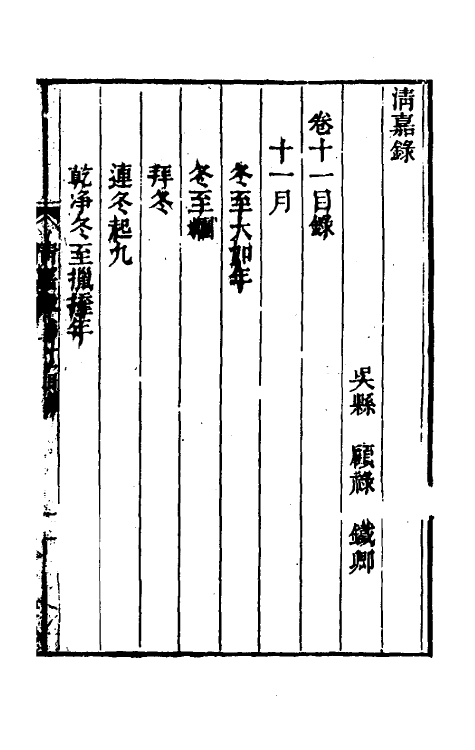 清嘉錄
吳縣 顧祿 鐵卿
卷十一目錄
十一月
冬至大如年
冬至糰
拜冬
連冬起九
乾净冬至邋遢年